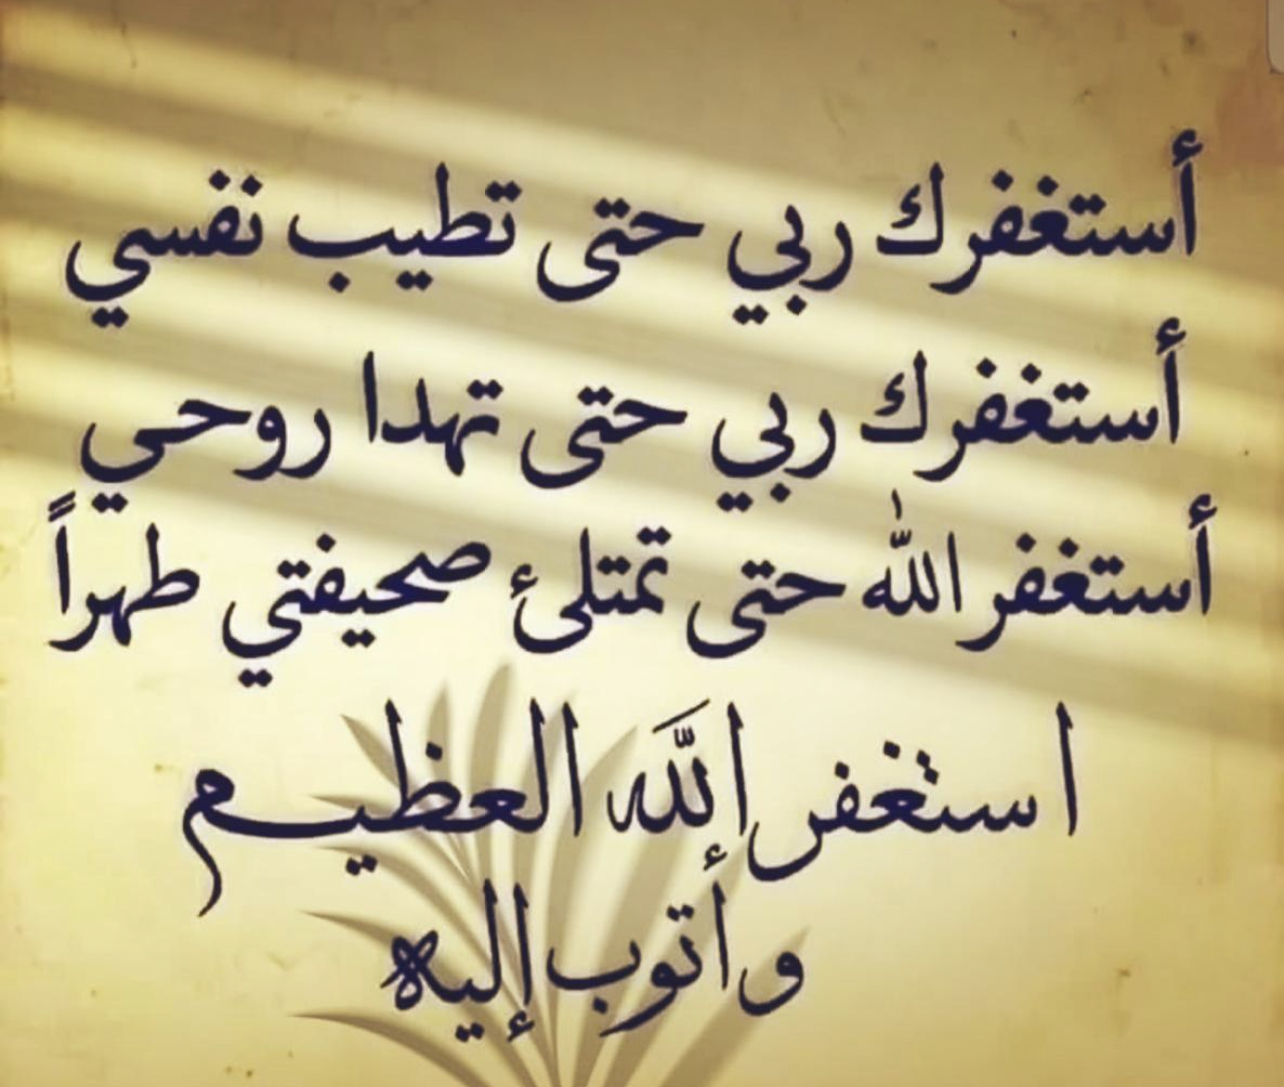 أستغفرك ربي حتى تطيب نفسي
أستغفرك ربي حتى تهدا روحي
أستغفر الله حتى تمتلئ صحيفتي طهراً
استغفر اللَّه العظيـم
وأتوب إليه